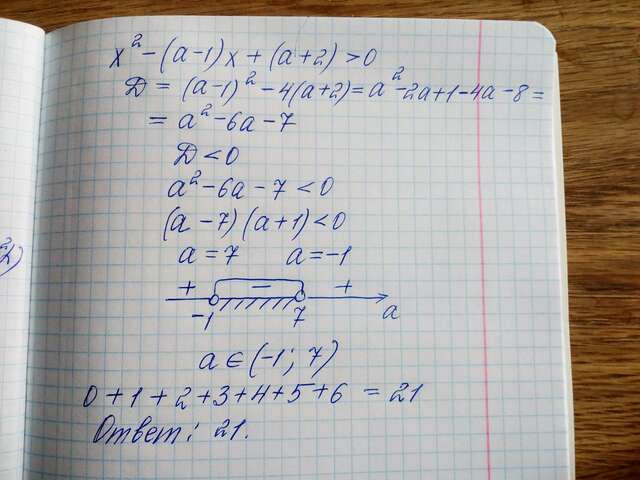 x² - (a-1)x + (a+2) > 0
D = (a-1)² - 4(a+2) = a² - 2a + 1 - 4a - 8 =
= a² - 6a - 7
D < 0
a² - 6a - 7 < 0
(a - 7)(a + 1) < 0
a = 7 a = -1
+ - +
-1 7 a
a ∈ (-1; 7)
0 + 1 + 2 + 3 + 4 + 5 + 6 = 21
Ответ: 21.